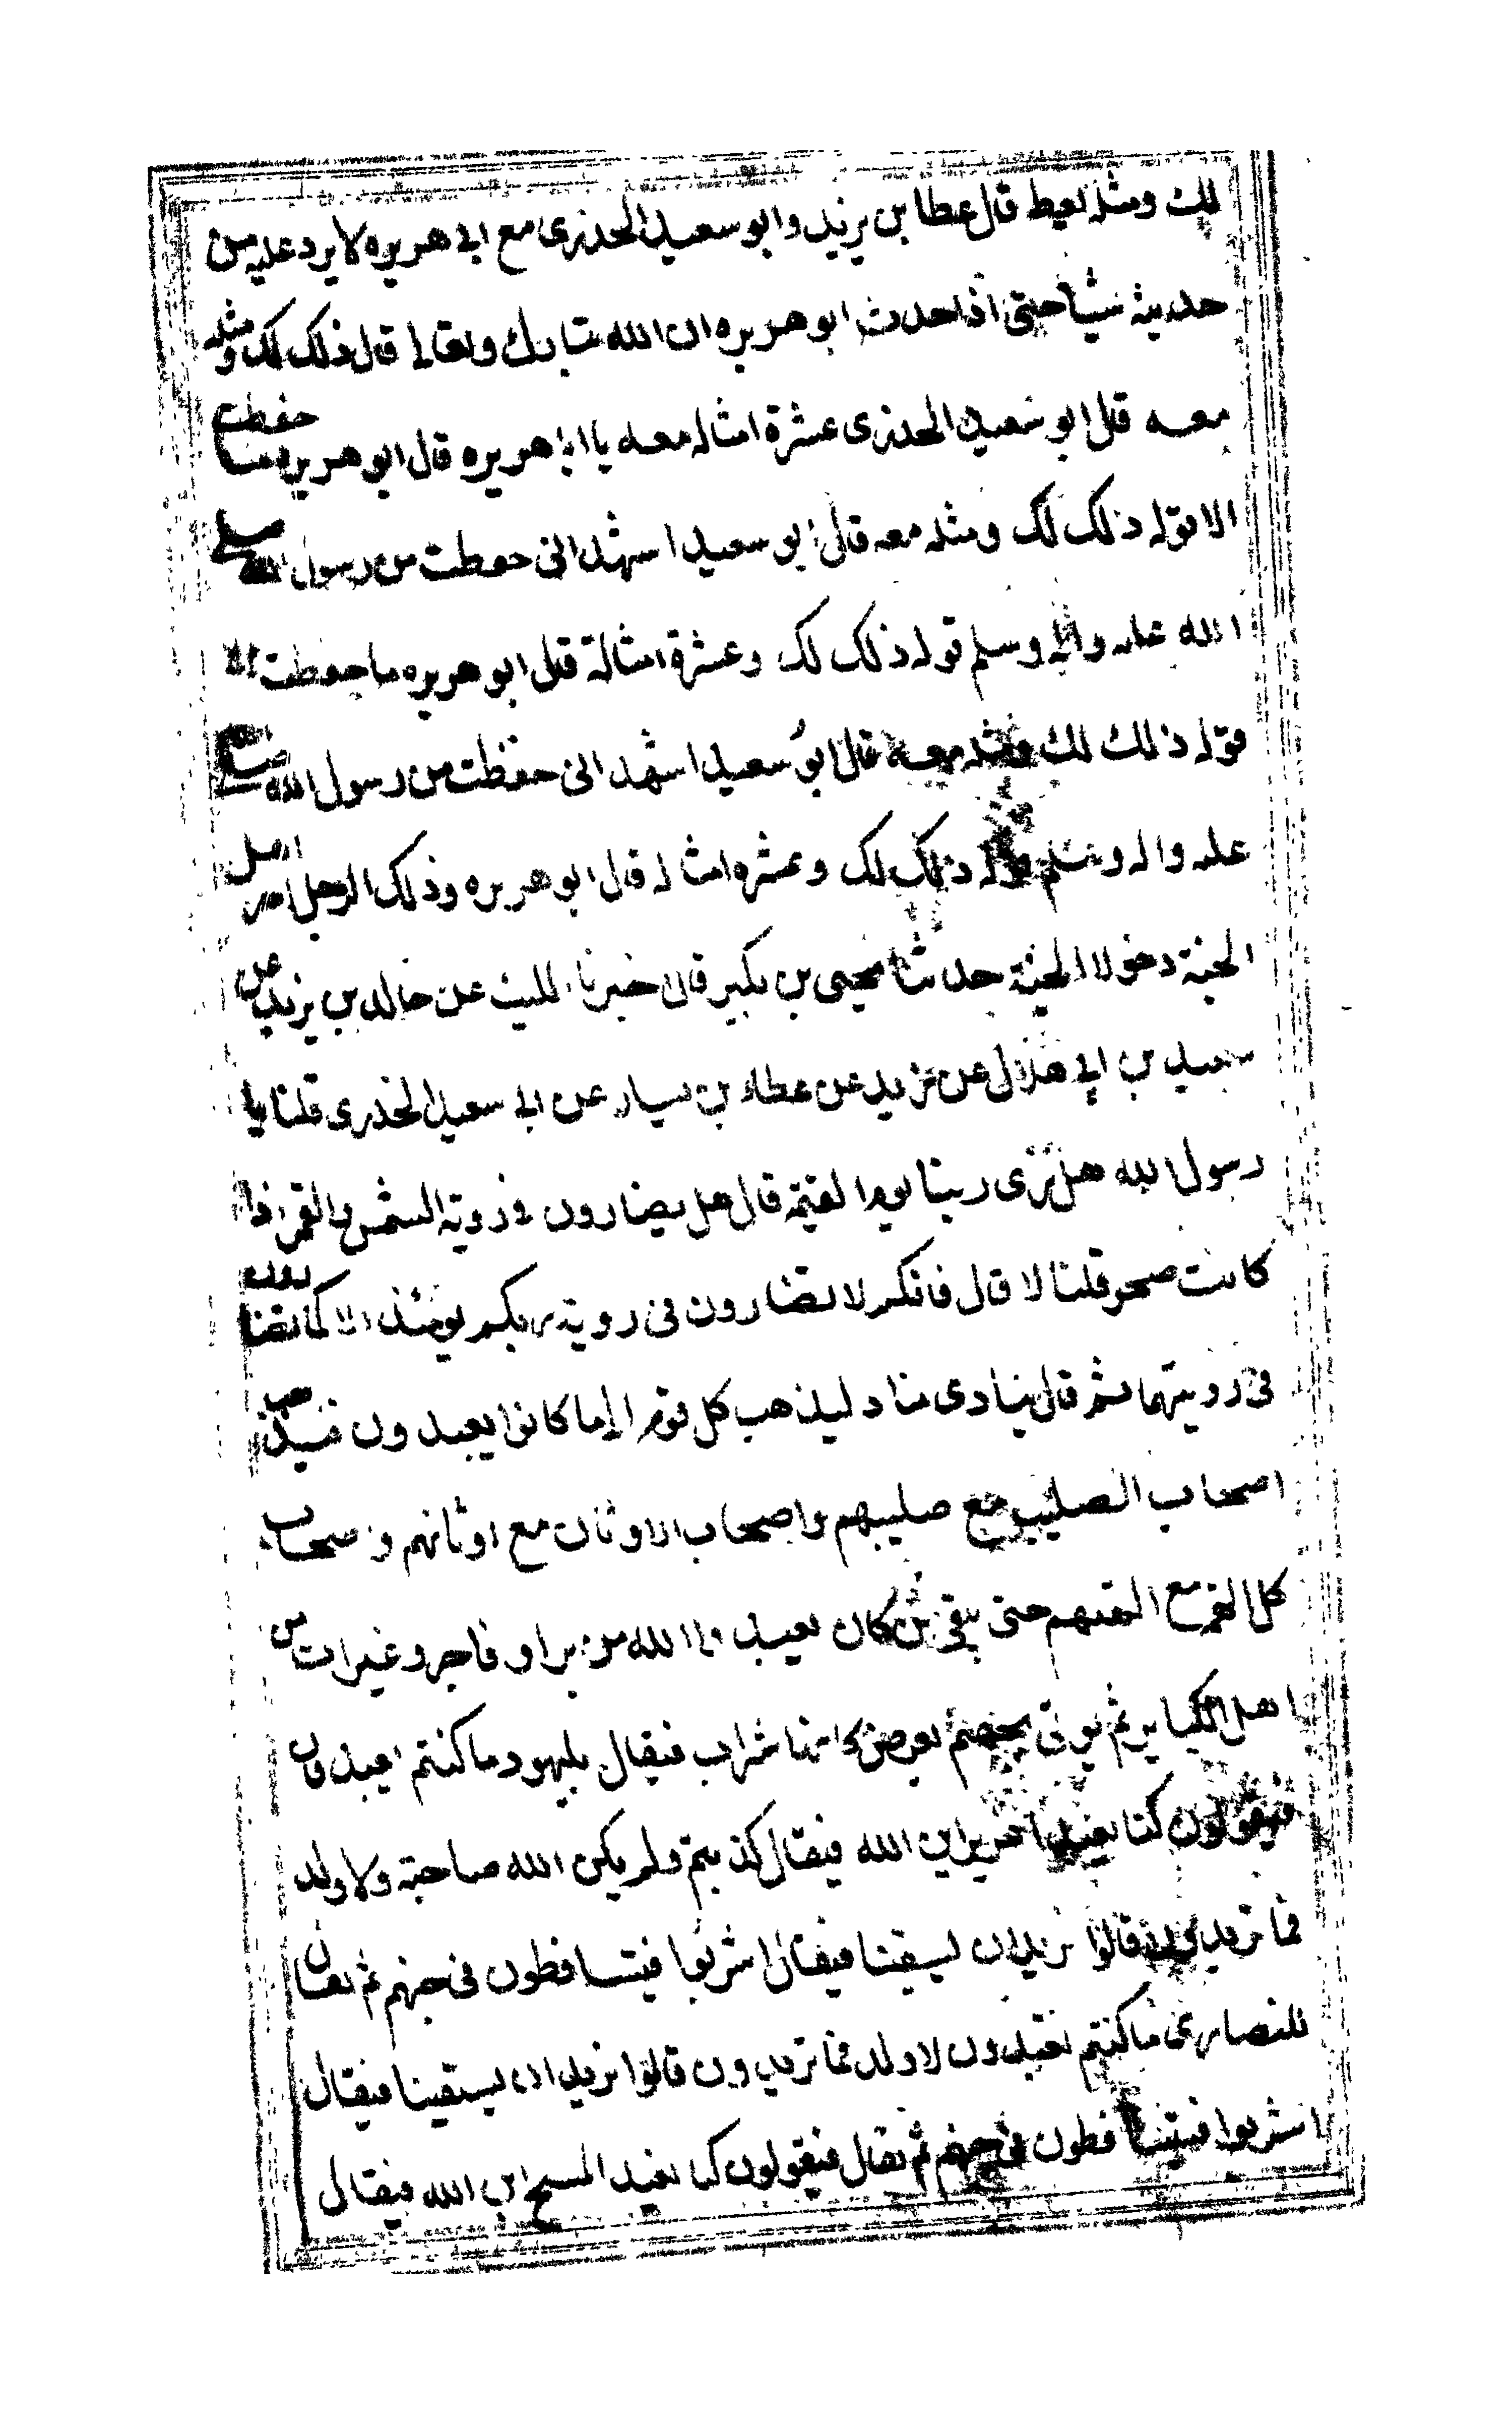 لك ومثله لعيط قال عطا بن يزيد وابو سعيد الخدرى مع ابى هريره لا يرد عليه من
حديثه شيئا حتى اذا حدث ابو هريره ان الله تبارك وتعالى قال ذلك لك ومثله
معه قال ابو سعيد الخدرى عشرة امثاله معه يا ابا هريره قال ابو هريره ما حفظت
الا قوله ذلك لك ومثله معه قال ابو سعيد اشهد انى حفظت من رسول الله صلى
الله عليه واله وسلم قوله ذلك لك وعشرة امثالة قال ابو هريره ما حفظت الا
قوله ذلك لك ومثله معه قال ابو سعيد اشهد انى حفظت من رسول الله صلى
عليه واله وسلم قوله ذلك لك وعشره امثاله قال ابو هريره وذلك الرجل اخر اهل
الجنة دخولا الجنة حدثنا يحيى بن بكير قال اخبرنا الليث عن خالد بن يزيد عن
سعيد بن ابى هلال عن يزيد عن عطاء بن يسار عن ابى سعيد الخدرى قلنا يا
رسول الله هل نرى ربنا يوم القيمة قال هل تضارون فى روية الشمس والقمر اذا
كانت صحو قلنا لا قال فانكم لا تضارون فى روية ربكم يومئذ الا كما تضارون
فى رويتهما ثم قال ينادى مناد ليذهب كل قوم الى ما كانوا يعبدون فيذهب
اصحاب الصليب مع صليبهم واصحاب الاوثان مع اوثانهم واصحاب
كل الهة مع الهتهم حتى يبقى من كان يعبد الله من بر او فاجر وغبرات من
اهل الكتاب ثم يوتى بجهنم تعرض كانها شراب فيقال لليهود ما كنتم تعبدون
فيقولون كنا نعبد عزير ابن الله فيقال كذبتم ولم يكن الله صاحبة ولا ولد
فما تريدون قالوا نريد ان تسقينا فيقال اشربوا فيتساقطون فى جهنم ثم يقال
للنصارى ما كنتم تعبدون لا ولد فما تريدون قالوا نريد ان تسقينا فيقال
اشربوا فيتساقطون فى جهنم ثم يقال فيقولون كنا نعبد المسيح ابن الله فيقال